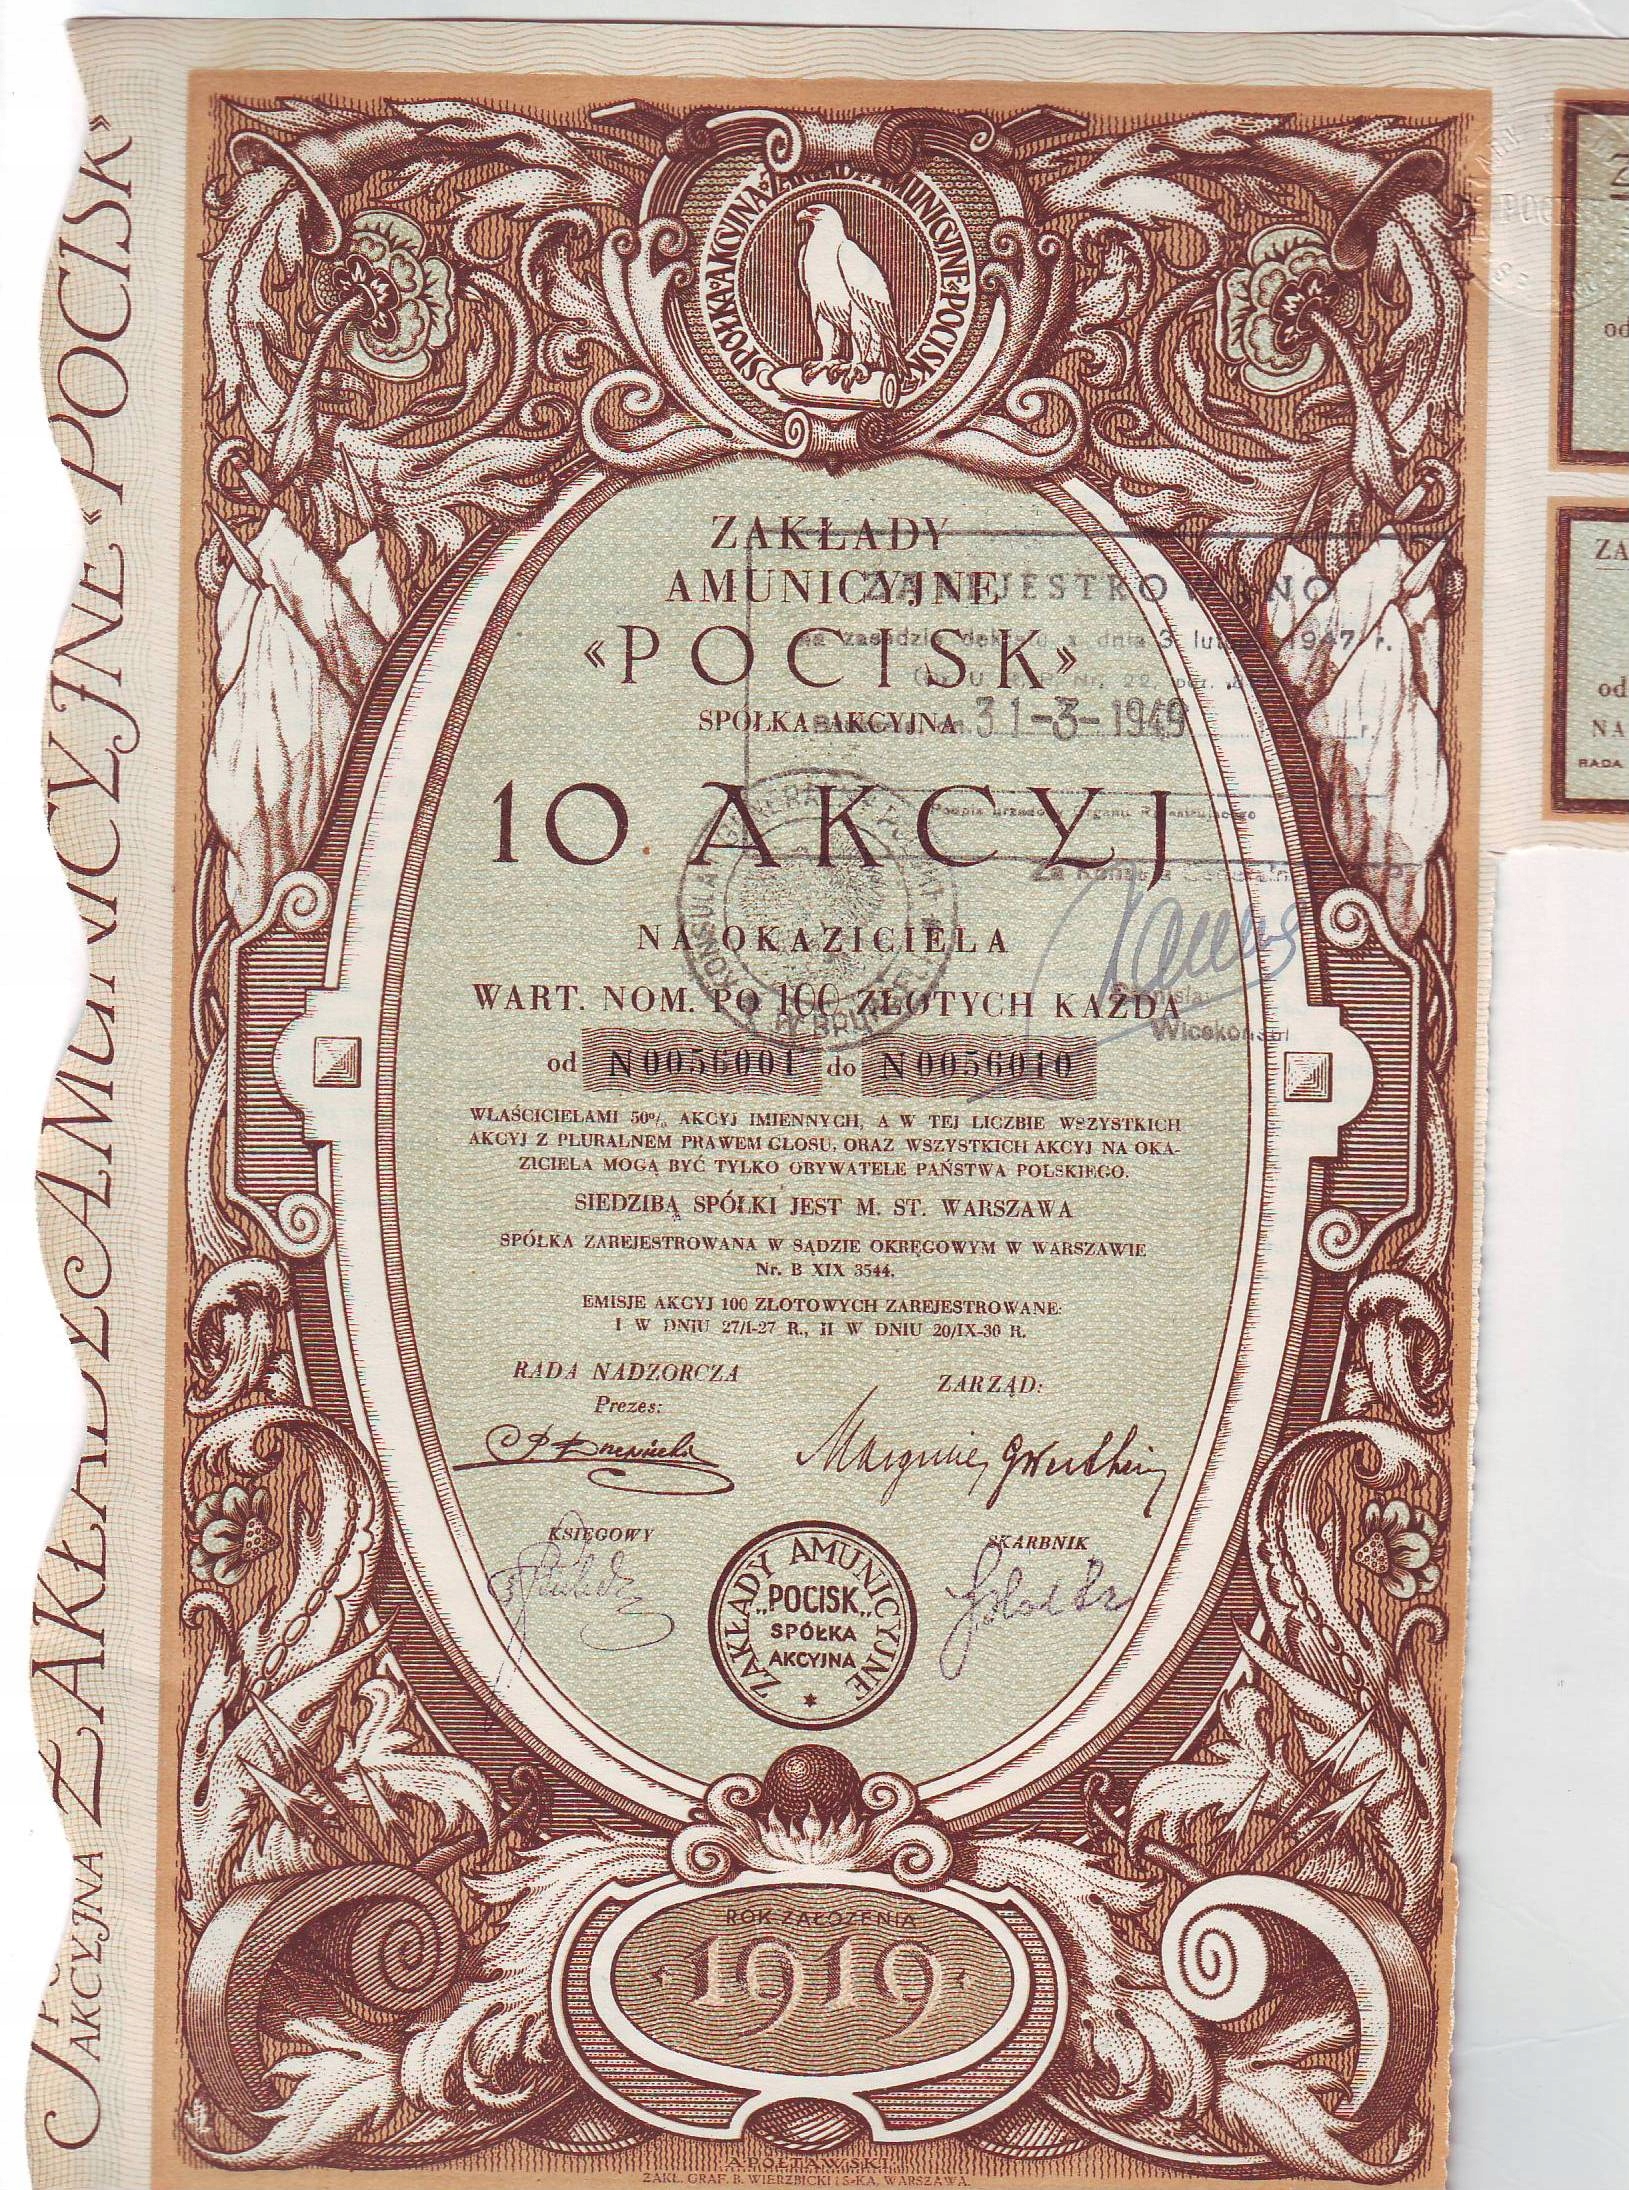 SPÓŁKA AKCYJNA ZAKŁADY AMUNICYJNE «POCISK»
SPÓŁKA·AKCYJNA·ZAKŁADY·AMUNICYJNE·POCISK
ZAKŁADY
AMUNICYJNE
«POCISK»
SPÓŁKA AKCYJNA
ZAREJESTROWANO
na zasadzie dekretu z dnia 3 lutego 1947 r.
31-3-1949 r.
10 AKCYJ
Podpis urzędow. organu Rejestrującego
Za Konsula Generalnego
KONSULAT GENERALNY
W BRUKSELI
NA OKAZICIELA
WART. NOM. PO 100 ZŁOTYCH KAŻDA
Wicekonsul
od N0056001 do N0056010
WŁAŚCICIELAMI 50% AKCYJ IMIENNYCH, A W TEJ LICZBIE WSZYSTKICH
AKCYJ Z PLURALNEM PRAWEM GŁOSU, ORAZ WSZYSTKICH AKCYJ NA OKA-
ZICIELA MOGĄ BYĆ TYLKO OBYWATELE PAŃSTWA POLSKIEGO.
SIEDZIBĄ SPÓŁKI JEST M. ST. WARSZAWA
SPÓŁKA ZAREJESTROWANA W SĄDZIE OKRĘGOWYM W WARSZAWIE
Nr. B XIX 3544.
EMISJE AKCYJ 100 ZŁOTOWYCH ZAREJESTROWANE:
I W DNIU 27/I-27 R., II W DNIU 20/IX-30 R.
RADA NADZORCZA
Prezes:
ZARZĄD:
KSIĘGOWY
SKARBNIK
ZAKŁADY AMUNICYJNE
„POCISK„
SPÓŁKA
AKCYJNA
ROK ZAŁOŻENIA
1919
A. PÓŁTAWSKI
ZAKŁ. GRAF. B. WIERZBICKI i S-KA, WARSZAWA.
od
ZA
od
NA
RADA